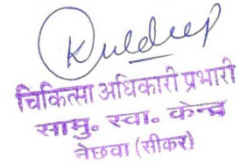 Kuldeep
चिकित्सा अधिकारी प्रभारी
सामु० स्वा० केन्द्र
नेछवा (सीकर)